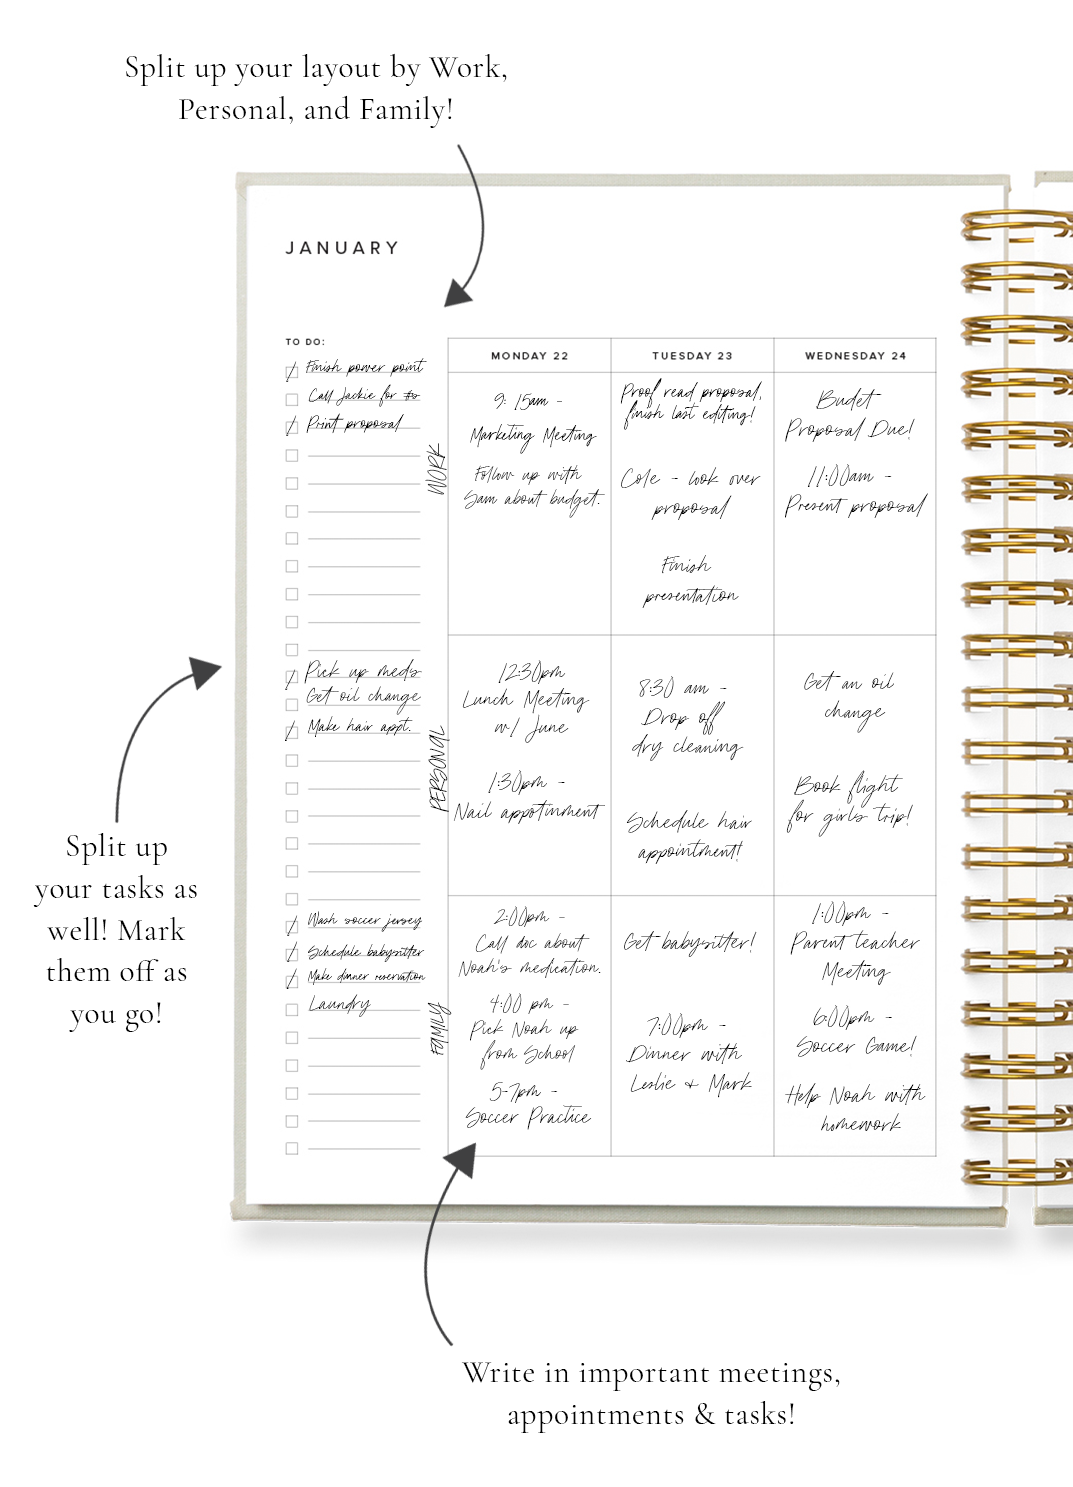 Split up your layout by Work,
Personal, and Family!
JANUARY
TO DO:
Finish power point
Call Jackie for #s
Print proposal
Pick up meds
Get oil change
Make hair appt.
Wash soccer jersey
Schedule babysitter
Make dinner reservation
Laundry
WORK
PERSONAL
FAMILY
MONDAY 22
9:15am -
Marketing Meeting
Follow up with
Sam about budget.
12:30pm
Lunch Meeting
w/ June
1:30pm -
Nail appotinment
2:00pm -
Call doc about
Noah's medication.
4:00 pm -
Pick Noah up
from School
5-7pm -
Soccer Practice
TUESDAY 23
Proof read proposal,
finish last editing!
Cole - look over
proposal
Finish
presentation
8:30 am -
Drop off
dry cleaning
Schedule hair
appointment!
Get babysitter!
7:00pm -
Dinner with
Leslie + Mark
WEDNESDAY 24
Budet
Proposal Due!
11:00am -
Present proposal
Get an oil
change
Book flight
for girls trip!
1:00pm -
Parent teacher
Meeting
6:00pm -
Soccer Game!
Help Noah with
homework
Split up
your tasks as
well! Mark
them off as
you go!
Write in important meetings,
appointments & tasks!